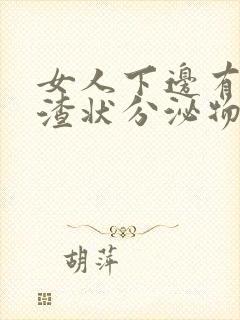 女人下邊有
渣状分泌物
胡萍